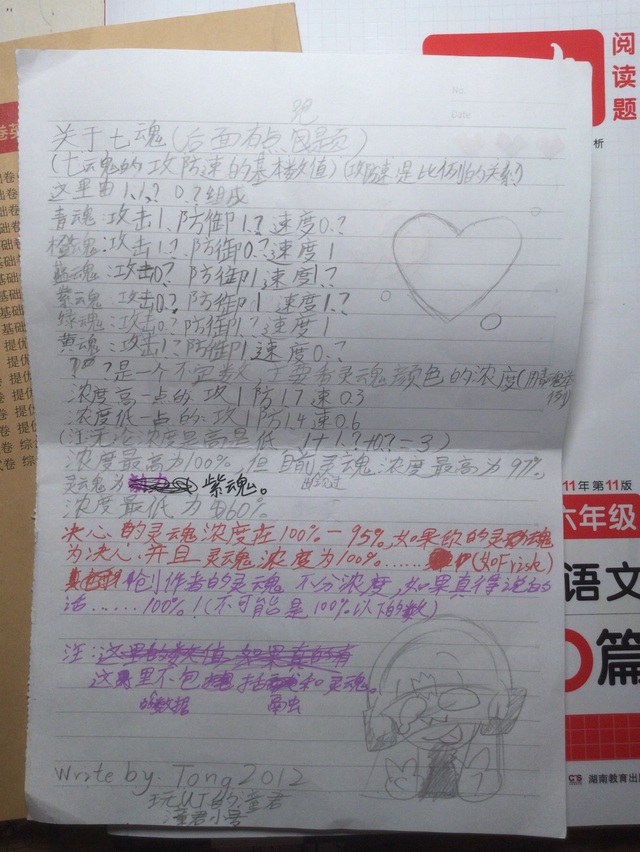 关于七魂(后面有点跑题)
(七灵魂的攻防速的基本数值)(攻防速是比例的关系)
这里由1,1.?,0.?组成
青魂:攻击1.防御1.?速度0.?
橙魂:攻击1.?防御0.?速度1
蓝魂:攻击0.?防御1速度1.?
紫魂:攻击0.?防御1速度1.?
绿魂:攻击0.?防御1.?速度1
黄魂:攻击1.?防御1速度0.?
"?"是一个不定数,主要看灵魂颜色的浓度(用青魂举例)
浓度高一点的:攻1防1.7速0.3
浓度低一点的:攻1防1.4速0.6
(注无论浓度是高是低 1+1.?+0.?=3)
浓度最高为100%,但目前出现过灵魂浓度最高为97%,
灵魂为紫魂。
浓度最低为60%
决心的灵魂浓度在100%-95%,如果你的灵魂
为决心,并且灵魂浓度为100%……(如Frisk)
创作者的灵魂不分浓度,如果真得说的
话……100%!(不可能是100%以下的数)
注:
这里不包括和灵魂。
的数据
Write by. Tong2012
玩UT的童君
童君小号
No.
Date
阅读题
析
11年第11版
六年级
语文
篇
湖南教育出版
基础
提优